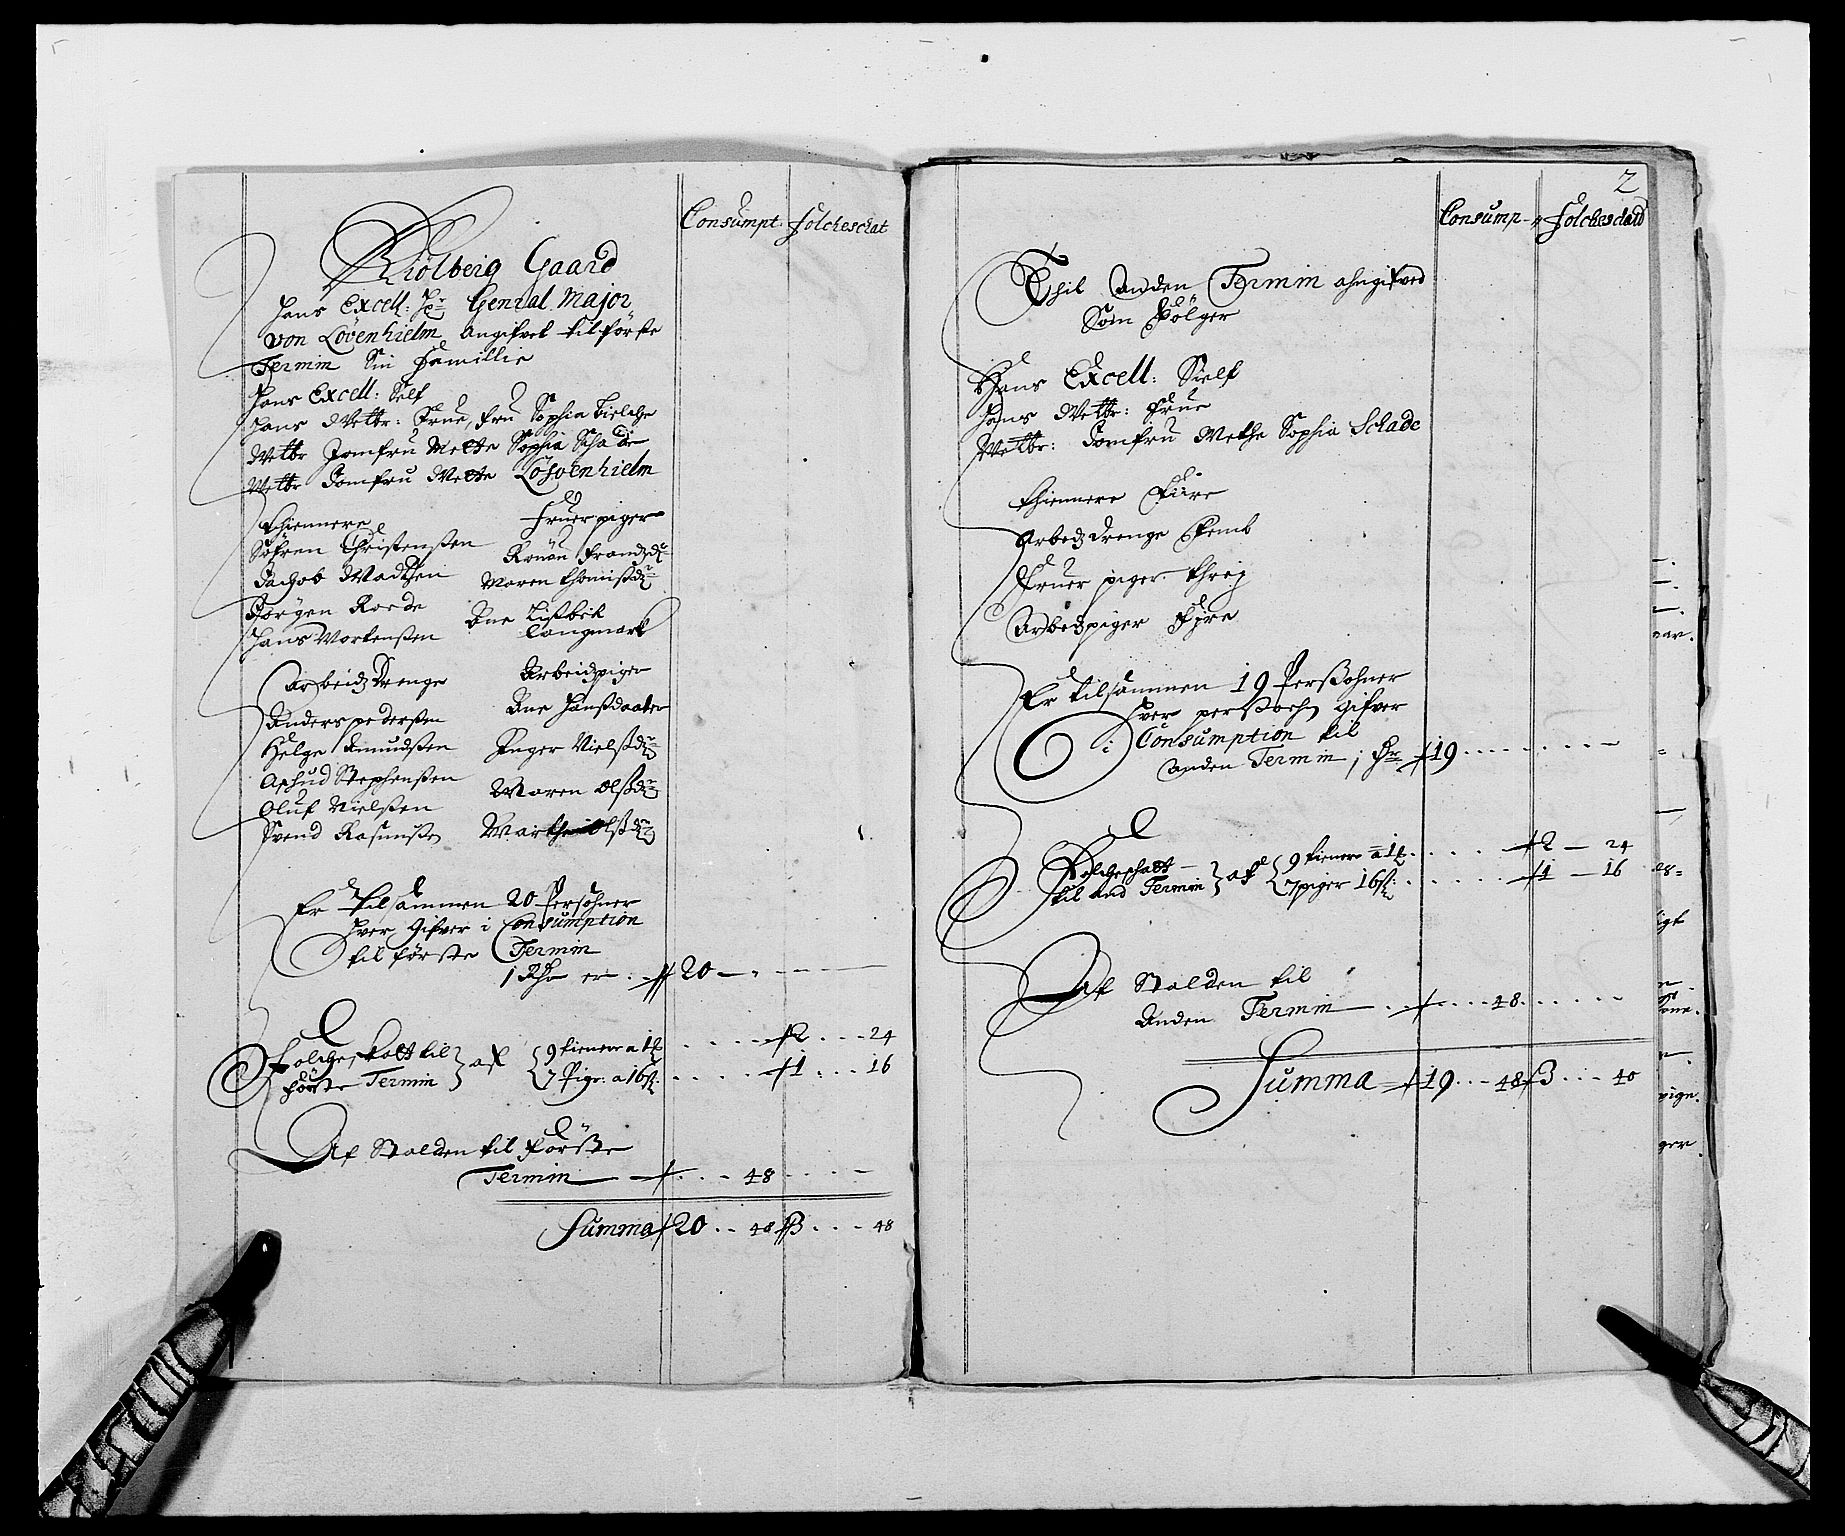 Consumpt. Folcheschat
Kiølberig Gaard
Hans Excell: Hr Genral Major
von Lövenhielm Angifvet til förste
Termin Sin Familie
Hans Excell: Self
Hans Velbr: Frue, Fru Sophia Bielche
Velbr Jomfru Mette Sophia Schade
Velbr Jomfru Mette Löfvenhielm
Thiennere
Söfren Christenßen
Jachob Madtzen
Jörgen Roede
Hans Mortenßen
Fruer piger
Maren Thomißdr
Ane Lisbet
Langmark
Arbeidz Drenge
Anders pederßen
Helge Amundßen
Stephenßen
Oluf Nielßen
Svend Rasmußen
Arbeidzpiger
Ane Hanßdaater
Inger Nielßdr
Maren Olßdr
Marthe Olßdr
Er tilsammen 20 Persohner
Hver Gifver i Consumption
til förste Termin
1 Rdr er . . 20 —
Folcheskatt til förste Termin af { 9 tienere a 1 . . . . 2 . . . 24
7 Piger a 16 ß . . . . 1 . . . 16
Af Stalden til förste
Termin — . . - 48 . . . .
Summa 20 . . 48 3 . . . 48
2
Consump- Folcheschatt
Thil Anden Termin ahngifved
Som Fölger
Hans Excell: Sielf
Hans Velbr: Frue
Velbr: Jomfru Methe Sophia Schade
Thiennere Fiire
Arbeidz drenge Femb
Fruer piger threj
Arbeidzpiger Fyre
Er tilsammen 19 Perßohner
hver perßohn Gifver
i Consumption til
Anden Termin 1 19 . . . .
Folcheschatt til and Termin af { 9 tienere a 1 . . . . 2 — 24
7 piger 16 ß . . . . 1 — 16
Af Stalden til
Anden Termin — . . . . 48 . . . .
Summa 19 . . . 48 3 . . . 40